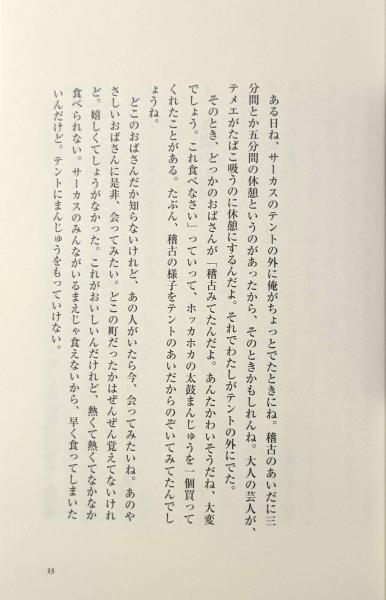 ある日ね、サーカスのテントの外に俺がちょっとでたときにね。稽古のあいだに三
分間とか五分間の休憩というのがあったから、そのときかもしれんね。大人の芸人が、
テメエがたばこ吸うのに休憩にするんだよ。それでわたしがテントの外にでた。
そのとき、どっかのおばさんが「稽古みてたんだよ。あんたかわいそうだね、大変
でしょう。これ食べなさい」っていって、ホッカホカの太鼓まんじゅうを一個買って
くれたことがある。たぶん、稽古の様子をテントのあいだからのぞいてみてたんでし
ょうね。
どこのおばさんだか知らないけれど、あの人がいたら今、会ってみたいね。あのや
さしいおばさんに是非、会ってみたい。どこの町だったかはぜんぜん覚えてないけれ
ど。嬉しくてしょうがなかった。これがおいしいんだけれど、熱くて熱くてなかなか
食べられない。サーカスのみんながいるまえじゃ食えないから、早く食ってしまいた
いんだけど。テントにまんじゅうをもっていけない。
13